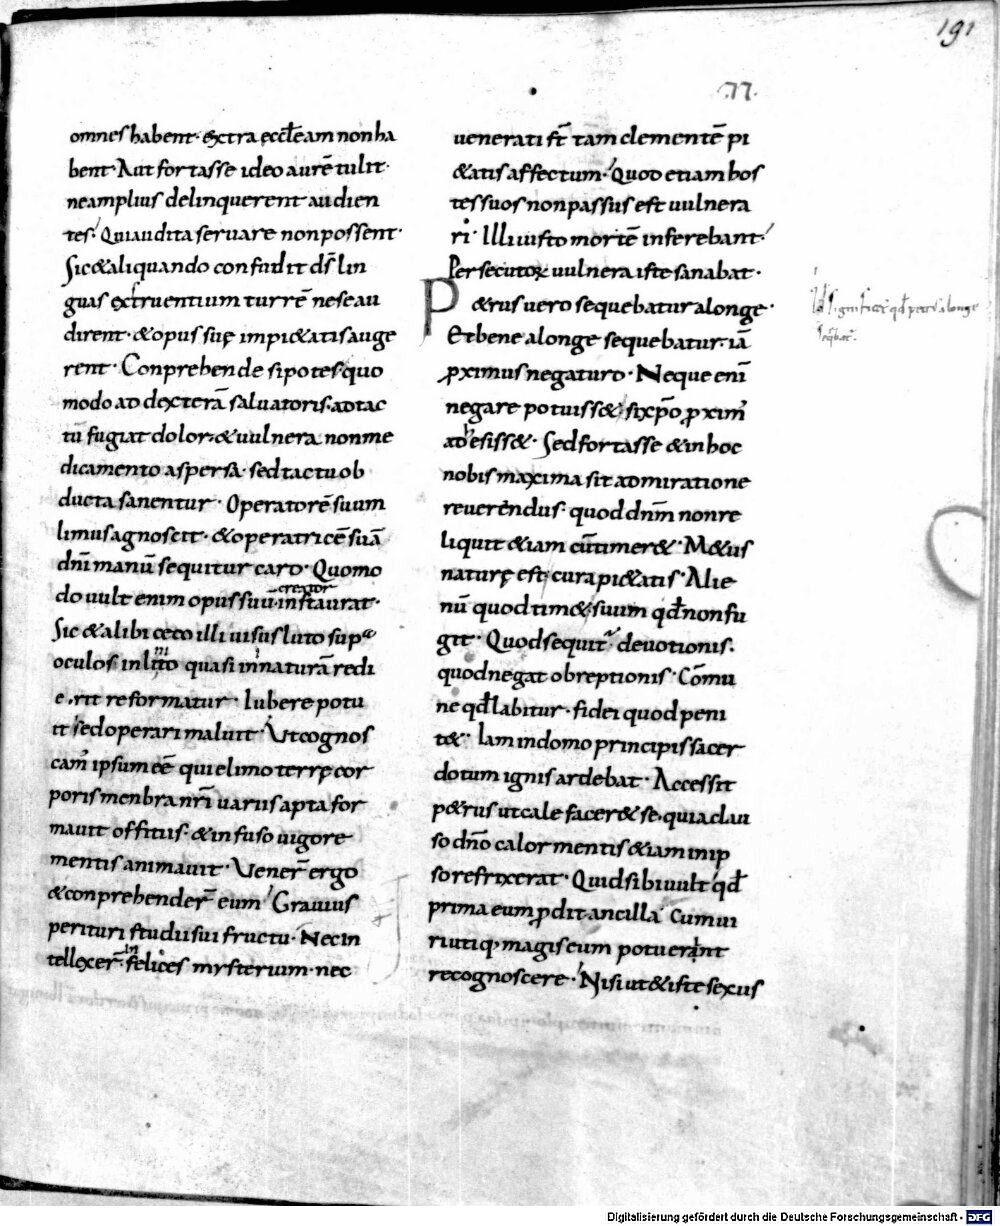 191
.77.
omnes habent· extra eccl̄eam non ha
bent· Aut fortasse ideo aurē tulit·
ne amplius delinquerent audien
tes· Qui audita seruare non possent·
Sic &aliquando confudit ds̄ lin
guas extruentium turrē ne se au
dirent· &opus suę impi&atis auge
rent· Conprehende si potes quo
modo ad dexterā saluatoris adtac
tū fugiat dolor· &uulnera non me
dicamento aspersa· sed tactu ob
ducta sanentur· Operatorē suum
limus agnoscit· &operatricē suā
dnī manū sequitur caro· Quomo
creator
do uult enim opus suū instaurat·
Sic &alibi ceco illi uisus luto sup
oculos inlito quasi in naturā redi
e.rit reformatur· Iubere potu
it sed operari maluit· Ut cognos
cam̄ ipsum eē qui e limo terrę cor
poris menbra nrī uariis apta for
mauit offitiis· &infuso uigore
mentis animauit· Vener̄ ergo
&conprehender̄ eum· Grauius
perituri studii sui fructu· Nec in
tellexer̄ infelices mysterium· nec
uenerati st̄ tam clementē pi
&atis affectum· Quod etiam hos
tes suos non passus est uulnera
ri· Illi iusto mortē inferebant·
Persecutorꝝ uulnera iste sanabat·
P &rus uero sequebatur a longe·
Et bene a longe sequebatur· iā
ꝓximus negaturo· Neque enī
negare potuiss& si xp̄o ꝓxim̄
adhesiss&· Sed fortasse &in hoc
nobis maxima sit admiratione
reuerendus· quod dnm̄ non re
liquit &iam cū timer&· M&us
naturę est· cura pi&atis· Alie
nū quod tim& suum qd̄ non fu
git· Quod sequit̄ deuotionis·
quod negat obreptionis· Cōmu
ne qd̄ labitur· fidei quod peni
t&· Iam in domo principis sacer
dotum ignis ardebat· Accessit
p&rus ut calefacer& se· quia clau
so dn̄o calor mentis &iam in ip
so refrixerat· Quid sibi uult qd̄
prima eum ꝓdit ancilla cum ui
ri utiq; magis eum potuerint
recognoscere· Nisi ut &iste sexus
significet qd̄ petrus a longe
seqbat̄.
Digitalisierung gefördert durch die Deutsche Forschungsgemeinschaft - DFG